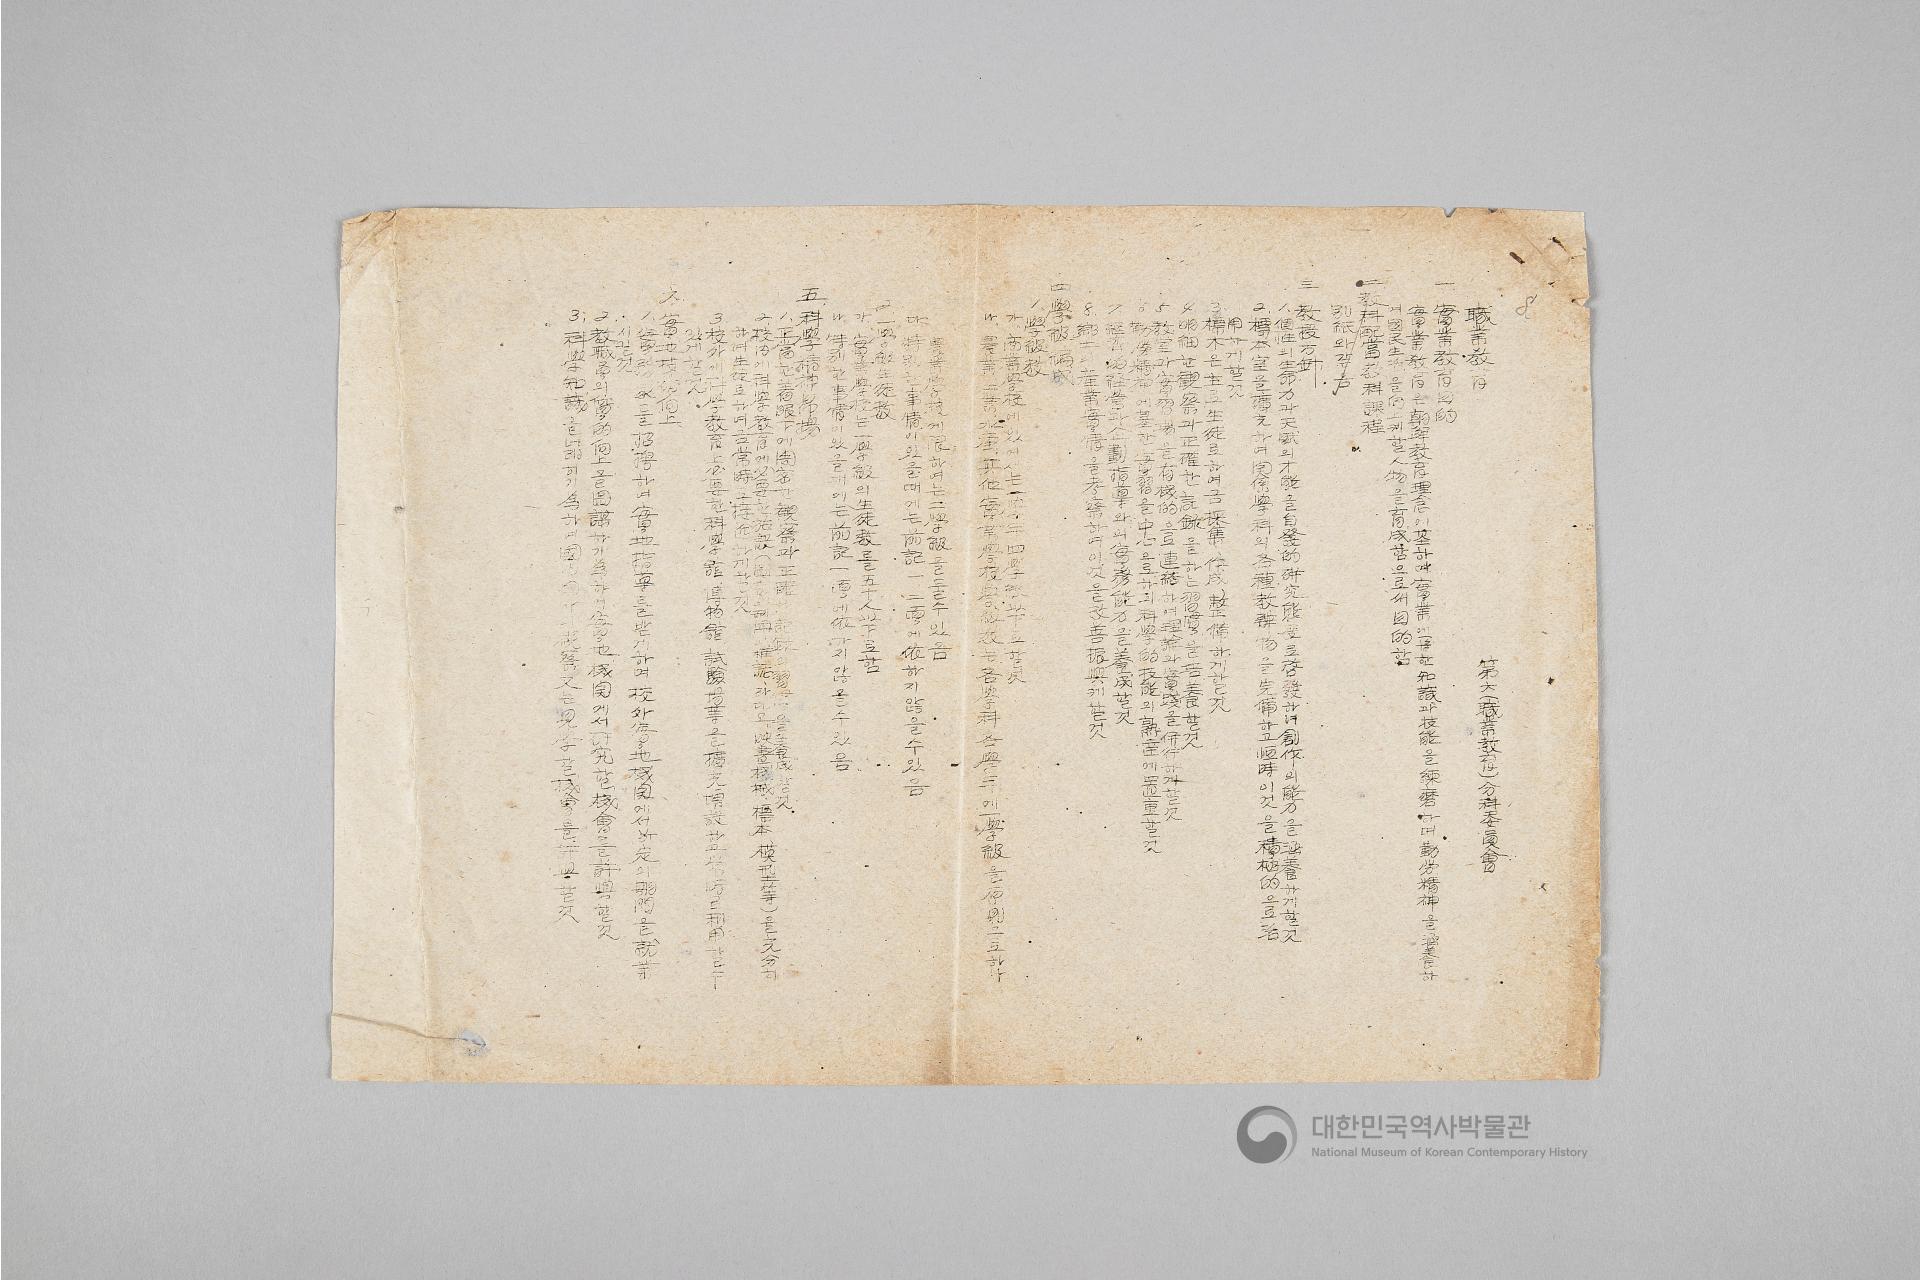 8
職業敎育
第六(職業敎育)分科委員會
一 實業敎育目的
實業敎育은 朝鮮敎育理念에 基하며 實業에 關한 知識과 技能을 練磨하며 勤勞精神을 涵養하
며 國民生活을 向上케할 人物을 育成함으로써 目的함
二 敎科配當及敎科課程
別紙와 각흠
三 敎授方針
1. 個性의 生命力과 天賦의 才能을 自發的 硏究態度로 啓發하녀 創作의 能力을 涵養하게할것
2. 標本室을 擴充하며 関係學科의 各種敎辨物을 完備하고 恒時 이것을 積極的으로 活
用하게할것
3. 標本은 主로 生徒로하여금 採集 作成, 整備하게할것
4. 明細한 觀察과 正確한 記錄을 하는 習慣을 培養할것
5. 敎室과 實習場을 有機的으로 連結하여 理論과 實踐을 併行하게할것
6. 勤勞精神에 基한 實習을 中心으로하되 科學的技能의 熟達에 置重할것
7. 經營的 企劃指導와의 實務能力을 養成할것
8. 鄕土의 產業實情을 考察하며 이것을 改善振興케할것
四 學級編成
1. 學級數
가. 商業學校에 있어서는 一學年 四學級以下로할것
나. 農業, 工業, 水產, 其他實業學校學級數는 各學科各學年에 一學級을 原則으로하나
農業學校에限하여는 二學級을둘수있음
다. 特別한 事情이있을때에는 前記 一, 二項에依하지않을수있음
2. 一學級生徒數
가. 實業學校는 一學級의 生徒數를 五十人以下로함
나. 特別한事情이있을때에는 前記 一項에依하지않을수있음
五 科學精神昂揚
1. 正當한 着眼下에 周密한 觀察과 正確한 記錄의 習慣을 養成할것
2. 校內에 科學敎育에 必要한 施設( 映畫機械, 標本 模型等)을 充分히
하며 生徒로하여금 常時 接近하게할것
3. 校外에 科學敎育上必要한 科學館 博物館 試驗場等을 擴充增設하고 利用하도록
있게할것
六 實地技術向上
1. 實務家를 招聘하여 實地指導를받게하며 校外實地機関에서 所定의 期間을 就業
시킬것
2. 敎職員의 質的向上을 圖謀하기爲하여 實地機関에서 硏究할 機會를 許與할것
3. 科學知識을 넓히기 爲하여 國內外 視察 又는 見學할 機會를 許與할것
대한민국역사박물관
National Museum of Korean Contemporary History